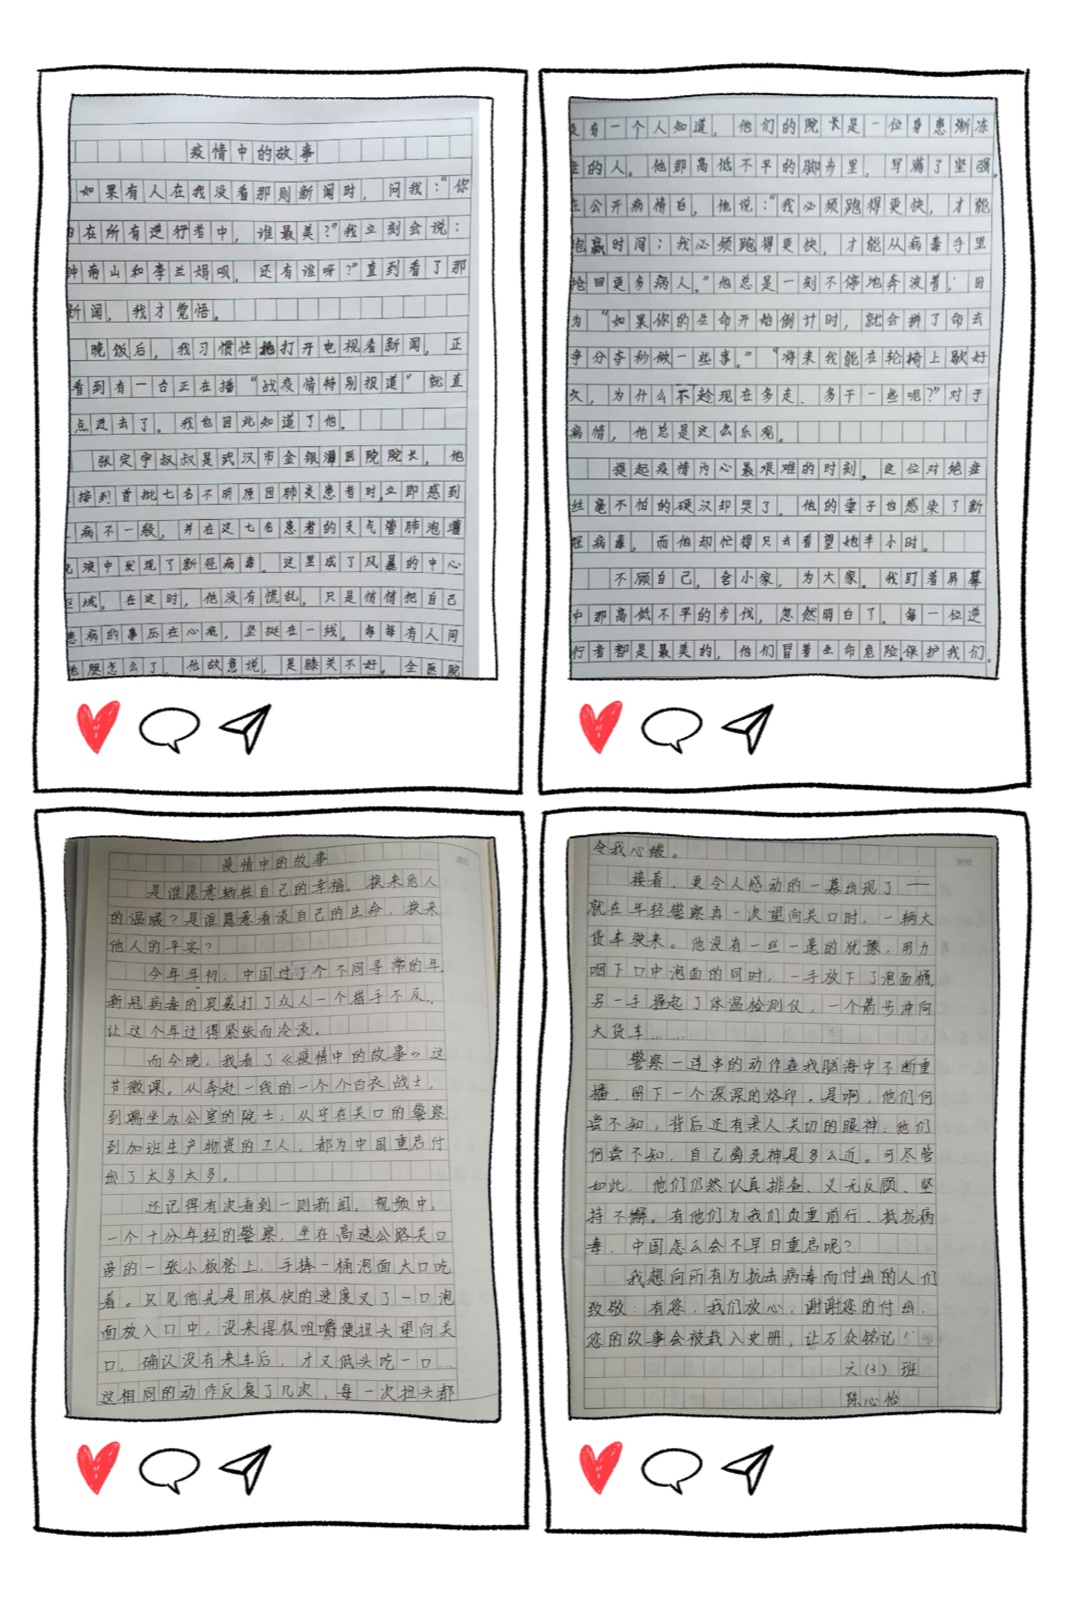 疫情中的故事
如果有人在我没看那则新闻时，问我：“你
在所有逆行者中，谁最美？”我立刻会说：
钟南山和李兰娟呗，还有谁呀？”直到看了那
新闻，我才觉悟。
晚饭后，我习惯性地打开电视看新闻，正
看到有一台正在播“战疫情特别报道”就直
点进去了。我也因此知道了他。
张定宇叔叔是武汉市金银潭医院院长，他
接到首批七名不明原因肺炎患者时，立即感到
病不一般，并在这七名患者的支气管肺泡灌
洗液中发现了新冠病毒。这里成了风暴的中心
区域。在这时，他没有慌乱，只是悄悄把自己
患病的事压在心底，坚挺在一线。每每有人问
他腿怎么了，他故意说，是膝关不好。全医院
没有一个人知道，他们的院长是一位身患渐冻
症的人。他那高低不平的脚步里，写满了坚强。
在公开病情后，他说：“我必须跑得更快，才能
跑赢时间；我必须跑得更快，才能从病毒手里
抢回更多病人。”他总是一刻不停地奔波着，因
为“如果你的生命开始倒计时，就会拼了命去
争分夺秒做一些事。”“将来我能在轮椅上歇好
久，为什么不趁现在多走、多干一些呢？”对于
病情，他总是这么乐观。
提起疫情内心最艰难的时刻，这位对绝症
丝毫不怕的硬汉却哭了。他的妻子也感染了新
冠病毒，而他却忙得只去看望她半小时。
不顾自己，舍小家，为大家。我盯着屏幕
中那高低不平的步伐，忽然明白了。每一位逆
行者都是最美的，他们冒着生命危险保护我们。
疫情中的故事
是谁愿意牺牲自己的幸福，换来他人
的温暖？是谁愿意看淡自己的生命，换来
他人的平安？
今年年初，中国过了个不同寻常的年，
新冠病毒的突袭打了众人一个措手不及，
让这个年过得紧张而冷淡。
而今晚，我看了《疫情中的故事》这
节微课。从奔赴一线的一个个白衣战士，
到端坐办公室的院士；从守在关口的警察
到加班生产物资的工人，都为中国重启付
出了太多太多。
还记得有次看到一则新闻。视频中，
一个十分年轻的警察，坐在高速公路关口
旁的一张小板凳上，手捧一桶泡面大口吃
着。只见他先是用极快的速度叉了一口泡
面放入口中，没来得极咀嚼便扭头望向关
口，确认没有来车后，才又低头吃一口……
这相同的动作反复了几次，每一次扭头都
令我心酸。
接着，更令人感动的一幕出现了——
就在年轻警察再一次望向关口时，一辆大
货车驶来。他没有一丝一毫的犹豫，用力
咽下口中泡面的同时，一手放下了泡面桶，
另一手握起了体温检测仪，一个箭步冲向
大货车……
警察一连串的动作在我脑海中不断重
播，留下一个深深的烙印。是啊，他们何
尝不知，背后还有亲人关切的眼神，他们
何尝不知，自己离死神是多么近。可尽管
如此，他们仍然认真排查、义无反顾、坚
持不懈。有他们为我们负重前行、抵抗病
毒，中国怎么会不早日重启呢？
我想向所有为抗击病毒而付出的人们
致敬：有您，我们放心，谢谢您的付出，
您的故事会被载入史册，让万众铭记！
六（3）班
陈心怡